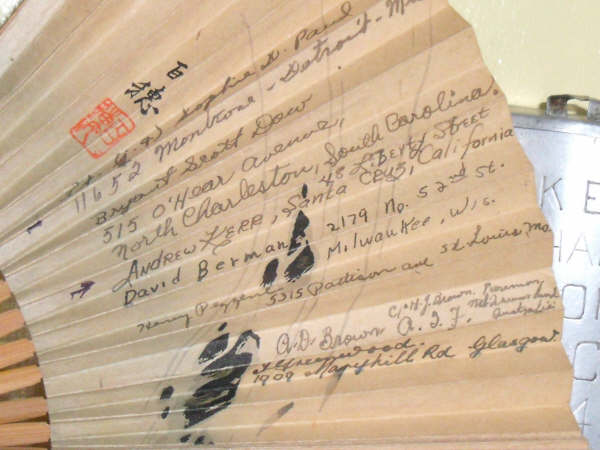 百穂
Sophie D. Paul
11652 Montrose - Detroit - M
Bryant Scott Dow
515 O'Hear avenue,
North Charleston, South Carolina.
ANDREW KERR, 48 LIBERTY STREET
Santa CRUZ, California
David Berman 2179 No. 52nd St.
Milwaukee, Wis.
Henry 5315 Pattison ave St Louis Mo.
A.D. Brown A.I.F. C/o H.J. Brown.
Australia
Greenwood.
1909 Maryhill Rd Glasgow.
KE
HA
ON
C
4